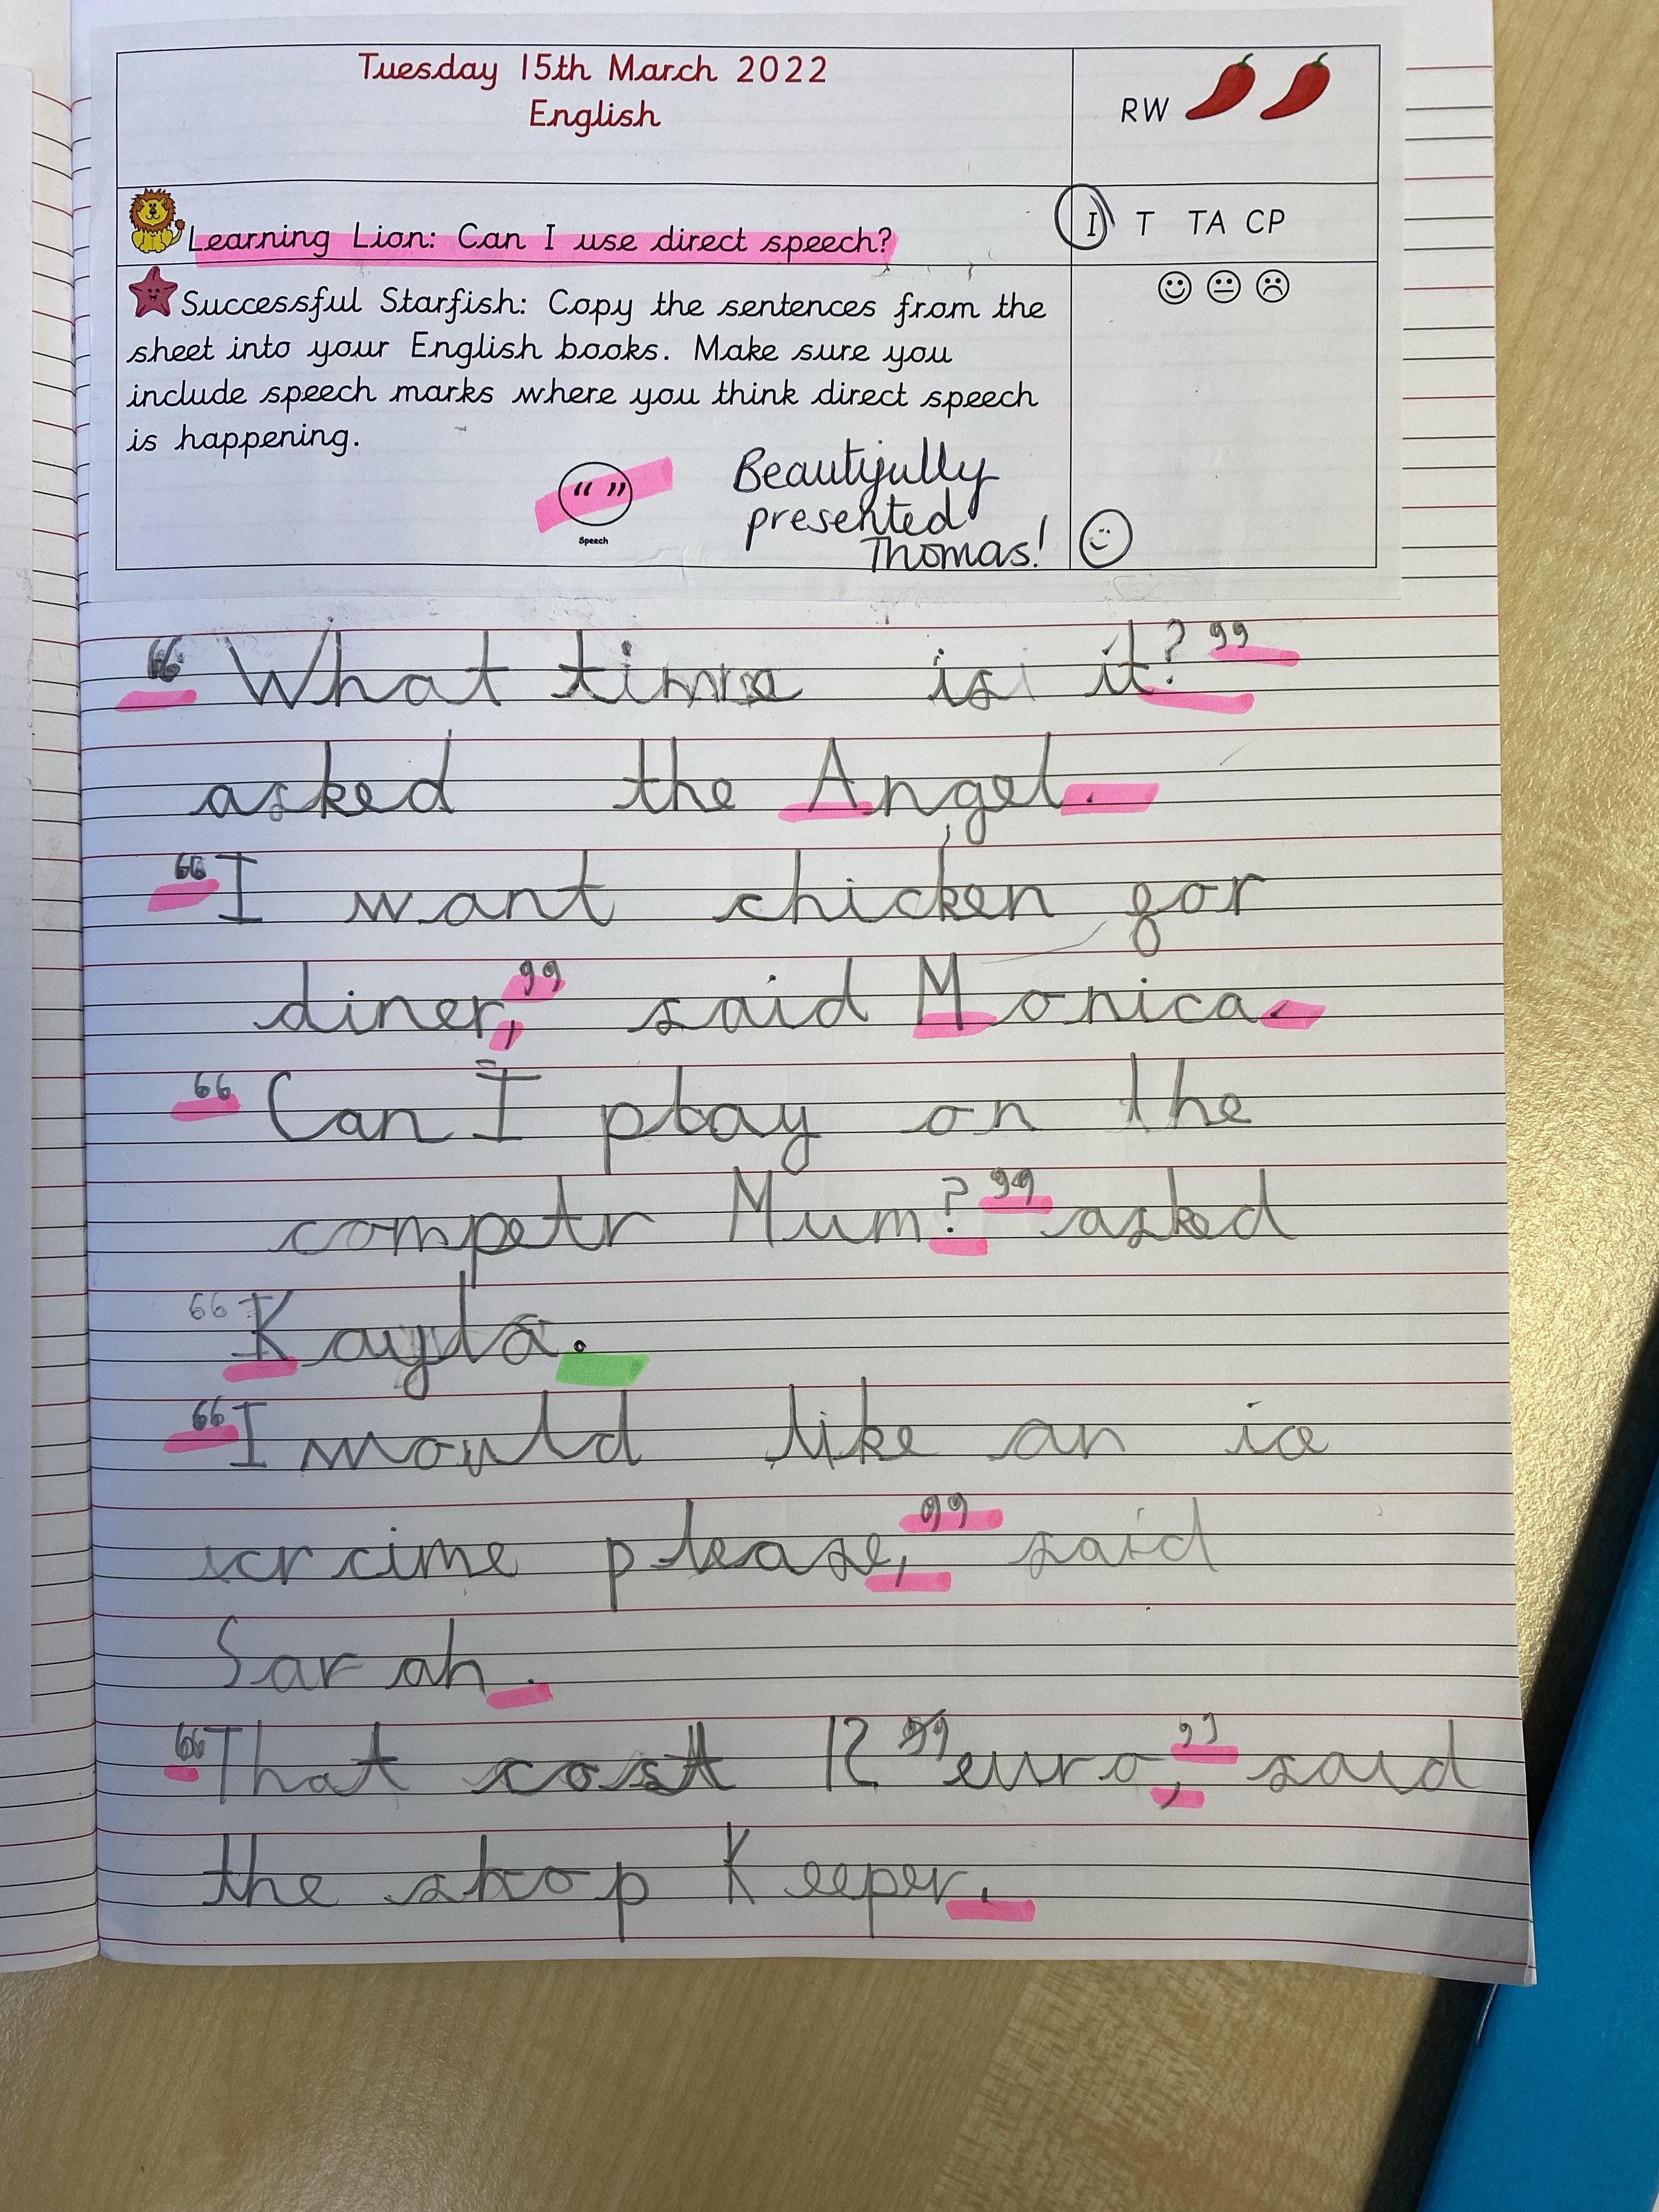 Tuesday 15th March 2022
English
RW
Learning Lion: Can I use direct speech?
I T TA CP
Successful Starfish: Copy the sentences from the
sheet into your English books. Make sure you
include speech marks where you think direct speech
is happening.
“ ”
Speech
Beautifully
presented
Thomas!
“What time is it?”
asked the Angel.
“I want chicken for
diner,” said Monica.
“Can I play on the
competr Mum?” asked
“Kayla.
“I would like an ice
scrcime please,” said
Sarah.
“That cost 12 euro,” said
the shop Keeper.